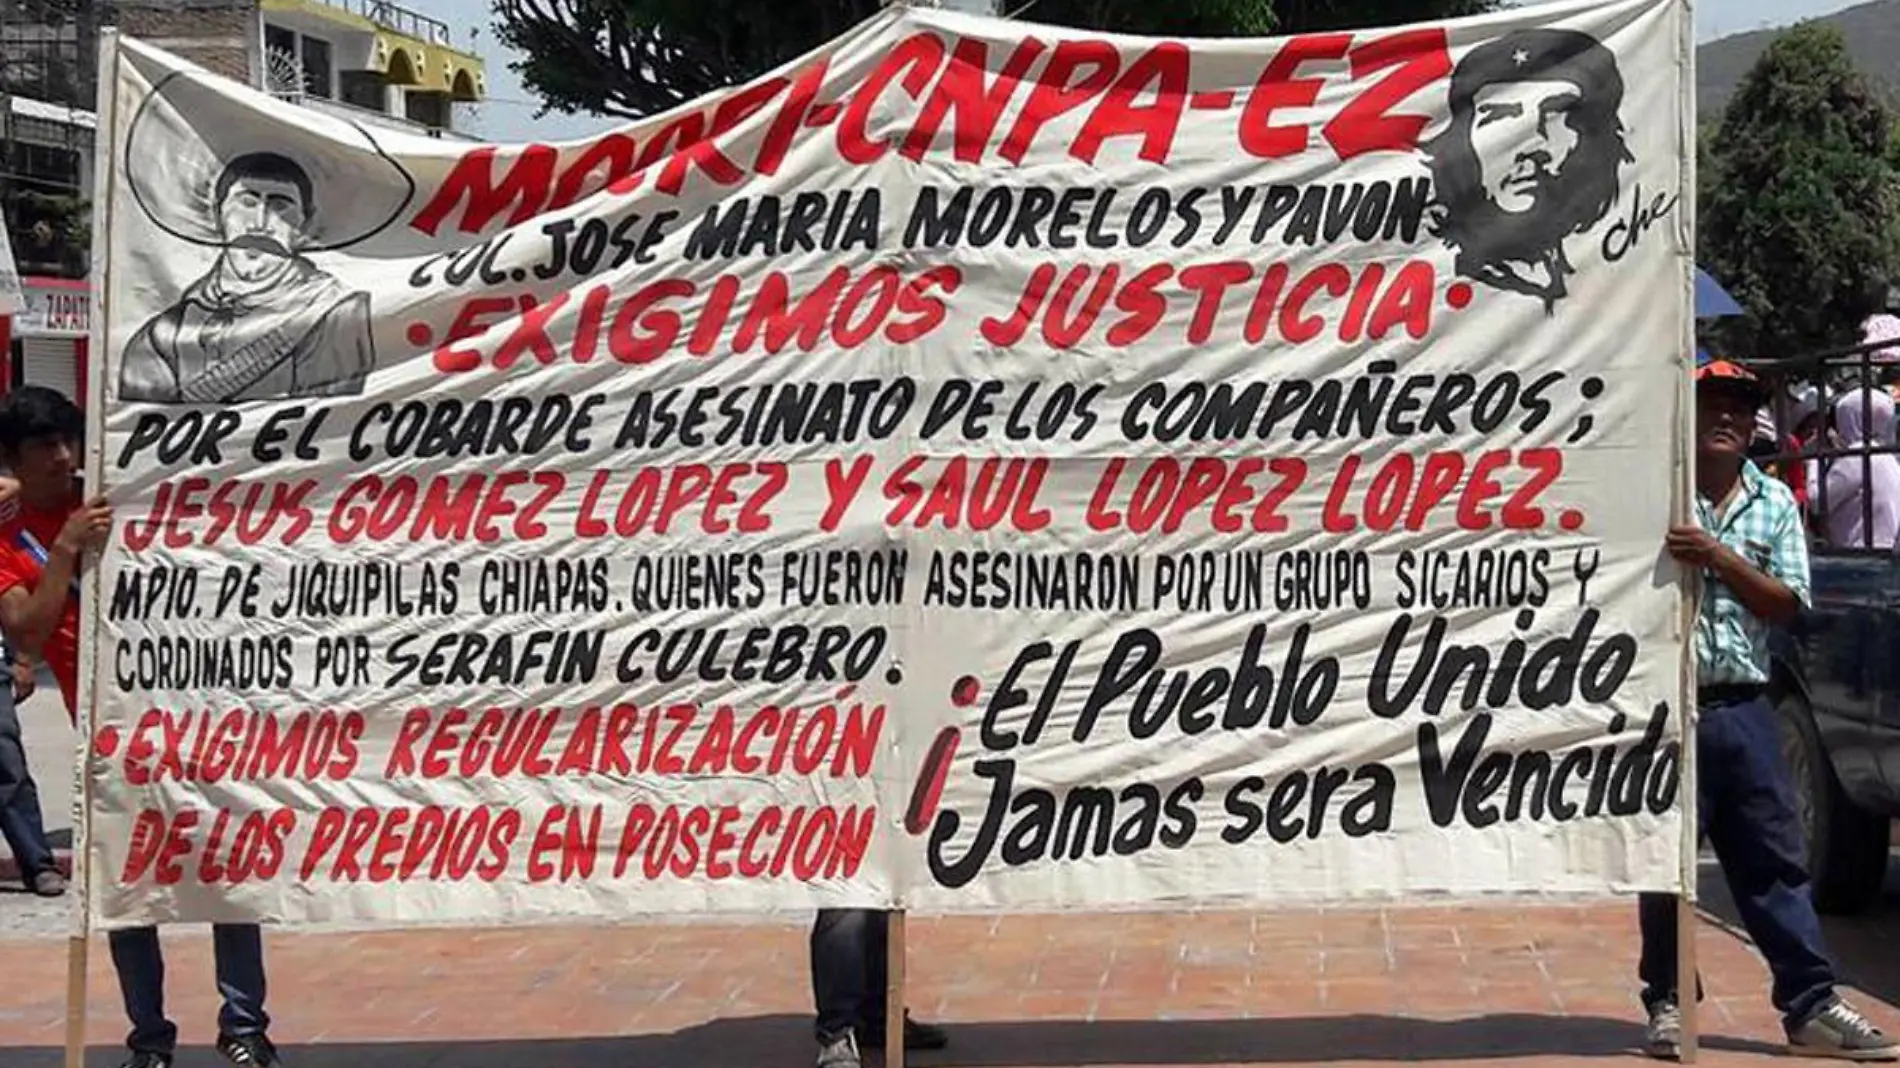 MOCRI-CNPA-EZ
COL. JOSE MARIA MORELOS Y PAVON
Che
•EXIGIMOS JUSTICIA•
POR EL COBARDE ASESINATO DE LOS COMPAÑEROS;
JESUS GOMEZ LOPEZ Y SAUL LOPEZ LOPEZ.
MPIO. DE JIQUIPILAS CHIAPAS. QUIENES FUERON ASESINARON POR UN GRUPO SICARIOS Y
CORDINADOS POR SERAFIN CULEBRO.
•EXIGIMOS REGULARIZACIÓN
DE LOS PREDIOS EN POSECION
¡El Pueblo Unido
¡Jamas sera Vencido
ZAPAT